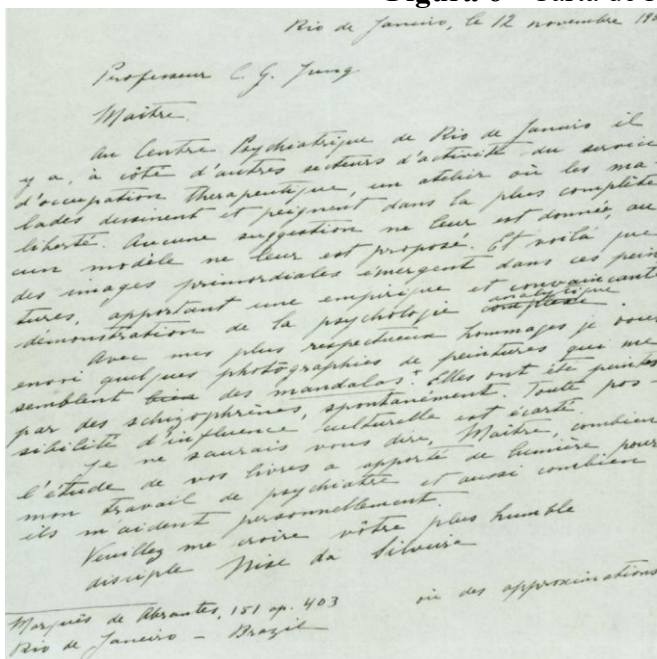 Rio de Janeiro, le 12 novembre 195
Professeur C. G. Jung
Maître.
Au Centre Psychiatrique de Rio de Janeiro il
y a, à côté d'autres secteurs d'activité du service
d'occupation therapeutique, un atelier où les ma-
lades dessinent et peignent dans la plus complète
liberté. Aucune suggestion ne leur est donnée, au
cun modèle ne leur est proposé. Et voilà que
des images primordiales émergent dans ces pein
tures, apportant une empirique et convaincante
démonstration de la psychologie complexe analytique.
Avec mes plus respectueux hommages je vous
envoi quelques photographies de peintures qui me
semblent bien des mandalas.* Elles ont été peintes
par des schizophrènes, spontanément. Toute pos-
sibilité d'influence culturelle est écarté.
Je ne saurais vous dire, Maître, combien
l'étude de vos livres a apporté de lumière pour
mon travail de psychiatre et aussi combien
ils m'aident personnellement.
Veuillez me croire vôtre plus humble
disciple Nise da Silveira
Marquês de Abrantes, 151 ap. 403
Rio de Janeiro - Brazil
ou des approximations